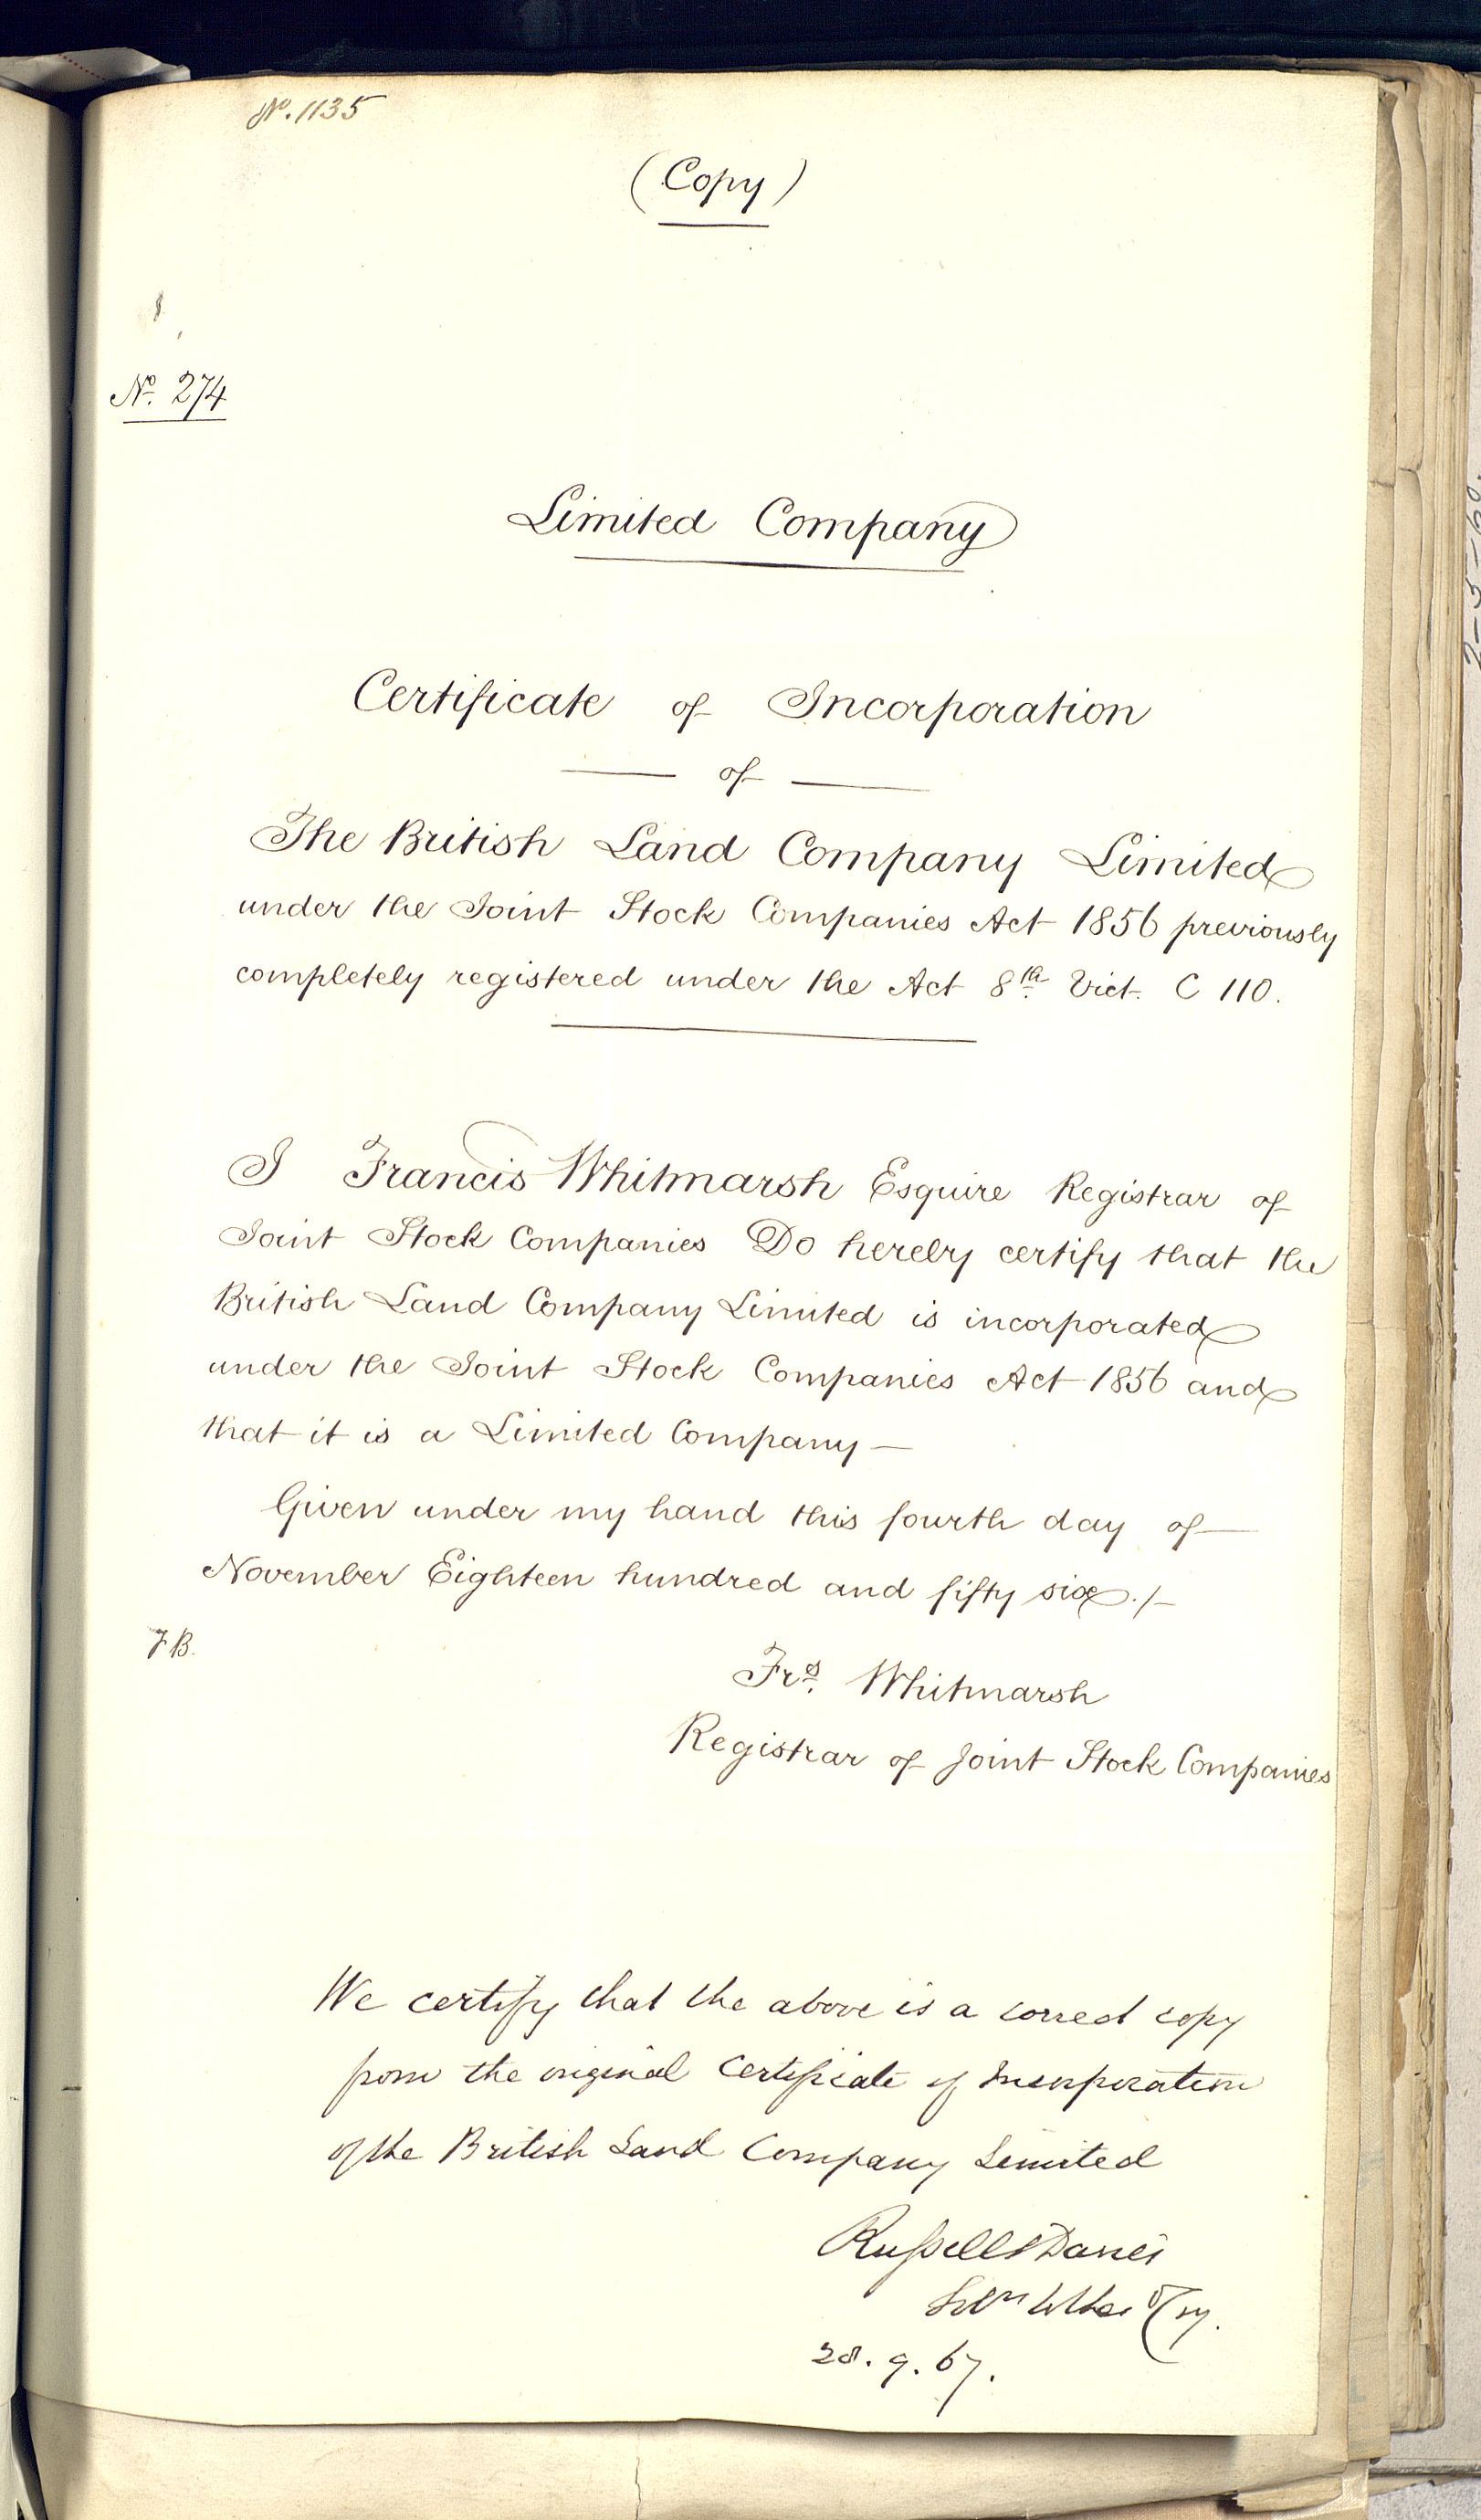 No. 1135
(Copy)
No. 274
Limited Company
Certificate of Incorporation
of
The British Land Company Limited
under the Joint Stock Companies Act 1856 previously
completely registered under the Act 8th Vict. C 110.
I Francis Whitmarsh Esquire Registrar of
Joint Stock Companies Do hereby certify that the
British Land Company Limited is incorporated
under the Joint Stock Companies Act 1856 and
that it is a Limited Company —
Given under my hand this fourth day of
November Eighteen hundred and fifty six./-
F B.
Frs. Whitmarsh
Registrar of Joint Stock Companies
We certify that the above is a correct copy
from the original Certificate of Incorporation
of the British Land Company Limited
Russell & Davies
Solrs to the Coy.
28. 9. 67.